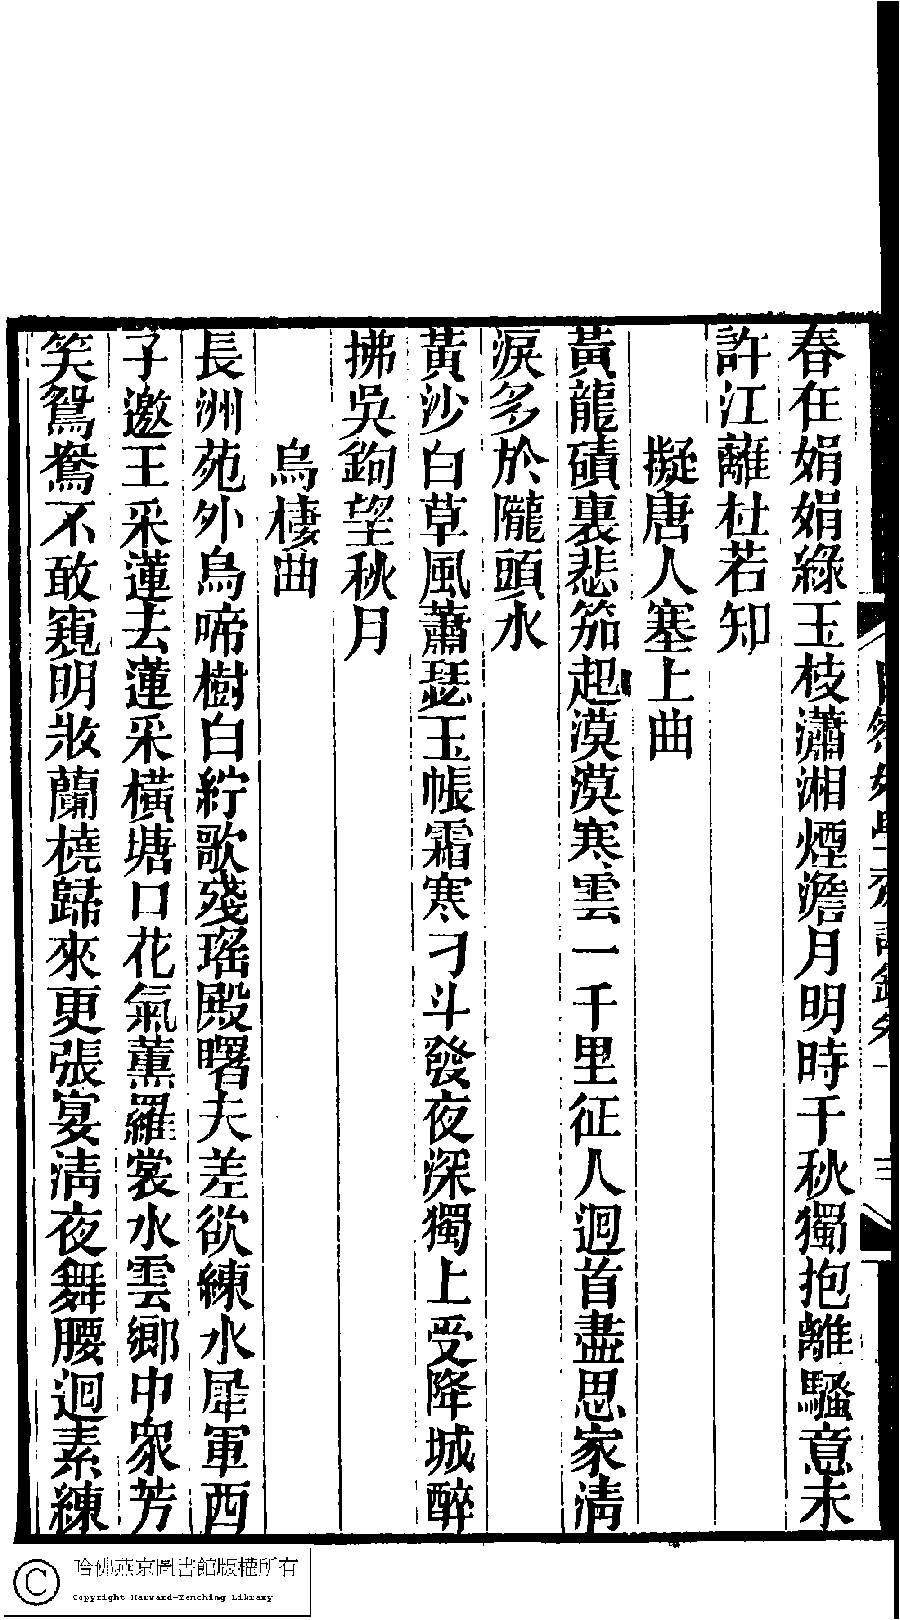 春在娟娟綠玉枝瀟湘煙澹月明時千秋獨抱離騷意未
許江蘺杜若知
擬唐人塞上曲
黃龍磧裏悲笳起漠漠寒雲一千里征人迴首盡思家淸
淚多於隴頭水
黃沙白草風蕭瑟玉帳霜寒刁斗發夜深獨上受降城醉
拂吳鉤望秋月
烏棲曲
長洲苑外烏啼樹白紵歌殘瑤殿曙夫差欲練水犀軍西
子邀王采蓮去蓮采橫塘口花氣薰羅裳水雲鄉中衆芳
笑鴛鴦不敢窺明妝蘭橈歸來更張宴淸夜舞腰迴素練
哈佛燕京圖書館版權所有
Copyright Harvard-Yenching Library